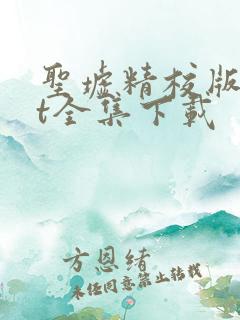 聖墟精校版
t全集下载
方恩绪
未经同意禁止转载